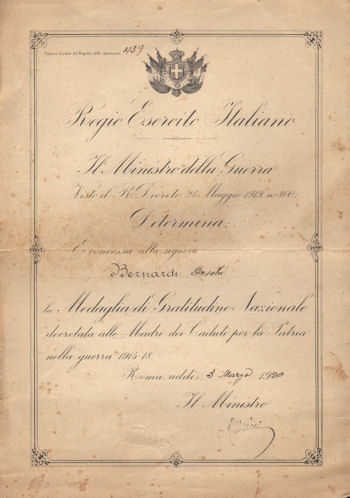 Numero d'ordine del Registro delle concessioni 1139
Regio Esercito Italiano
Il Ministro della Guerra
Visto il R. Decreto 24 Maggio 1919, n° 800;
Determina:
È concessa alla signora
Bernardi
la Medaglia di Gratitudine Nazionale
decretata alle Madri dei Caduti per la Patria
nella guerra 1915-18.
Roma, addì 3 Marzo 1920
Il Ministro